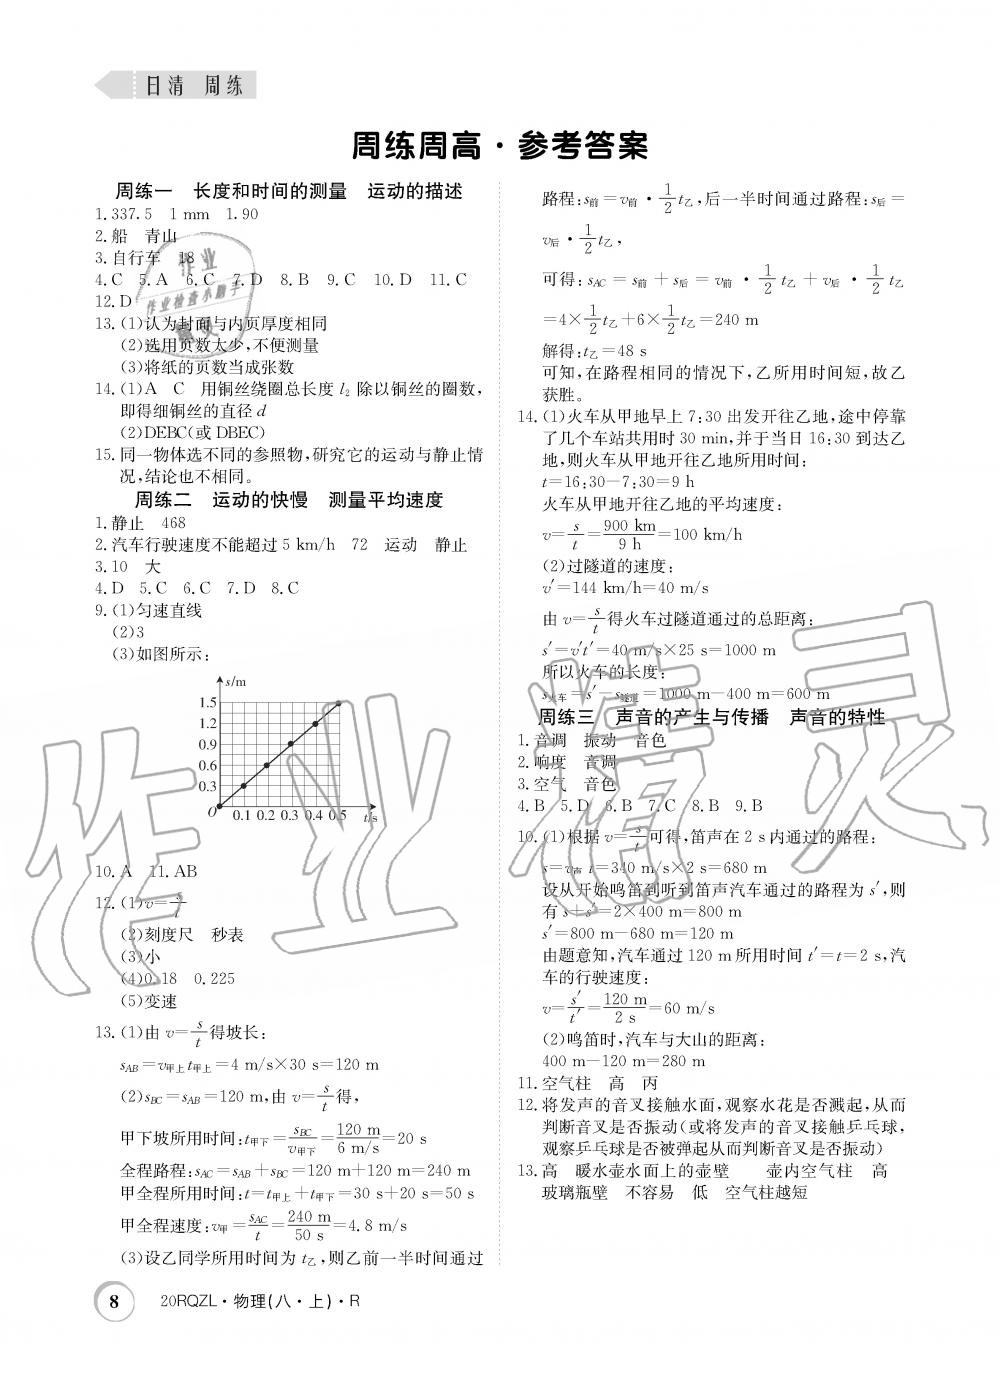 日清 周练
周练周高·参考答案
周练一 长度和时间的测量 运动的描述
1.337.5 1 mm 1.90
2.船 青山
3.自行车 18
4.C 5.A 6.C 7.D 8.B 9.C 10.D 11.C
12.D
13.(1)认为封面与内页厚度相同
(2)选用页数太少,不便测量
(3)将纸的页数当成张数
14.(1)A C 用铜丝绕圈总长度 l₂ 除以铜丝的圈数,
即得细铜丝的直径 d
(2)DEBC(或 DBEC)
15.同一物体选不同的参照物,研究它的运动与静止情
况,结论也不相同。
周练二 运动的快慢 测量平均速度
1.静止 468
2.汽车行驶速度不能超过 5 km/h 72 运动 静止
3.10 大
4.D 5.C 6.C 7.D 8.C
9.(1)匀速直线
(2)3
(3)如图所示:
s/m
1.5
1.2
0.9
0.6
0.3
O 0.1 0.2 0.3 0.4 0.5 t/s
10.A 11.AB
12.(1)v=s/t
(2)刻度尺 秒表
(3)小
(4)0.18 0.225
(5)变速
13.(1)由 v=s/t 得坡长:
sAB=v甲上t甲上=4 m/s×30 s=120 m
(2)sBC=sAB=120 m,由 v=s/t 得,
甲下坡所用时间:t甲下=sBC/v甲下=120 m/6 m/s=20 s
全程路程:sAC=sAB+sBC=120 m+120 m=240 m
甲全程所用时间:t=t甲上+t甲下=30 s+20 s=50 s
甲全程速度:v甲=sAC/t=240 m/50 s=4.8 m/s
(3)设乙同学所用时间为 t乙,则乙前一半时间通过
路程:s前=v前·1/2t乙,后一半时间通过路程:s后=
v后·1/2t乙,
可得:sAC=s前+s后=v前·1/2t乙+v后·1/2t乙
=4×1/2t乙+6×1/2t乙=240 m
解得:t乙=48 s
可知,在路程相同的情况下,乙所用时间短,故乙
获胜。
14.(1)火车从甲地早上 7:30 出发开往乙地,途中停靠
了几个车站共用时 30 min,并于当日 16:30 到达乙
地,则火车从甲地开往乙地所用时间:
t=16:30-7:30=9 h
火车从甲地开往乙地的平均速度:
v=s/t=900 km/9 h=100 km/h
(2)过隧道的速度:
v′=144 km/h=40 m/s
由 v=s/t 得火车过隧道通过的总距离:
s′=v′t′=40 m/s×25 s=1000 m
所以火车的长度:
s火车=s′-s隧道=1000 m-400 m=600 m
周练三 声音的产生与传播 声音的特性
1.音调 振动 音色
2.响度 音调
3.空气 音色
4.B 5.D 6.B 7.C 8.B 9.B
10.(1)根据 v=s/t 可得,笛声在 2 s 内通过的路程:
s=v声 t=340 m/s×2 s=680 m
设从开始鸣笛到听到笛声汽车通过的路程为 s′,则
有 s+s′=2×400 m=800 m
s′=800 m-680 m=120 m
由题意知,汽车通过 120 m 所用时间 t′=t=2 s,汽
车的行驶速度:
v=s′/t′=120 m/2 s=60 m/s
(2)鸣笛时,汽车与大山的距离:
400 m-120 m=280 m
11.空气柱 高 丙
12.将发声的音叉接触水面,观察水花是否溅起,从而
判断音叉是否振动(或将发声的音叉接触乒乓球,
观察乒乓球是否被弹起从而判断音叉是否振动)
13.高 暖水壶水面上的壶壁 壶内空气柱 高
玻璃瓶壁 不容易 低 空气柱越短
8 20RQZL·物理(八·上)·R
作业精灵
作业
作业检查小助手
精灵